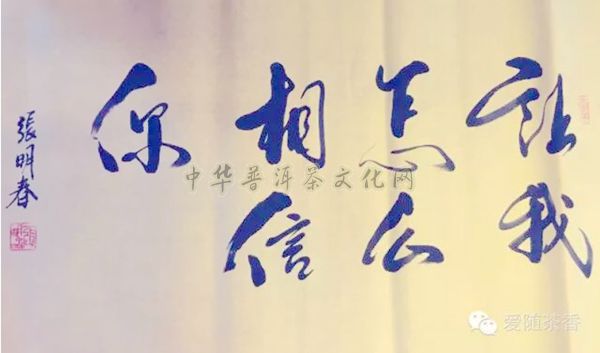 让我
怎么
相信
你
張明春
中华普洱茶文化网
爱随茶香